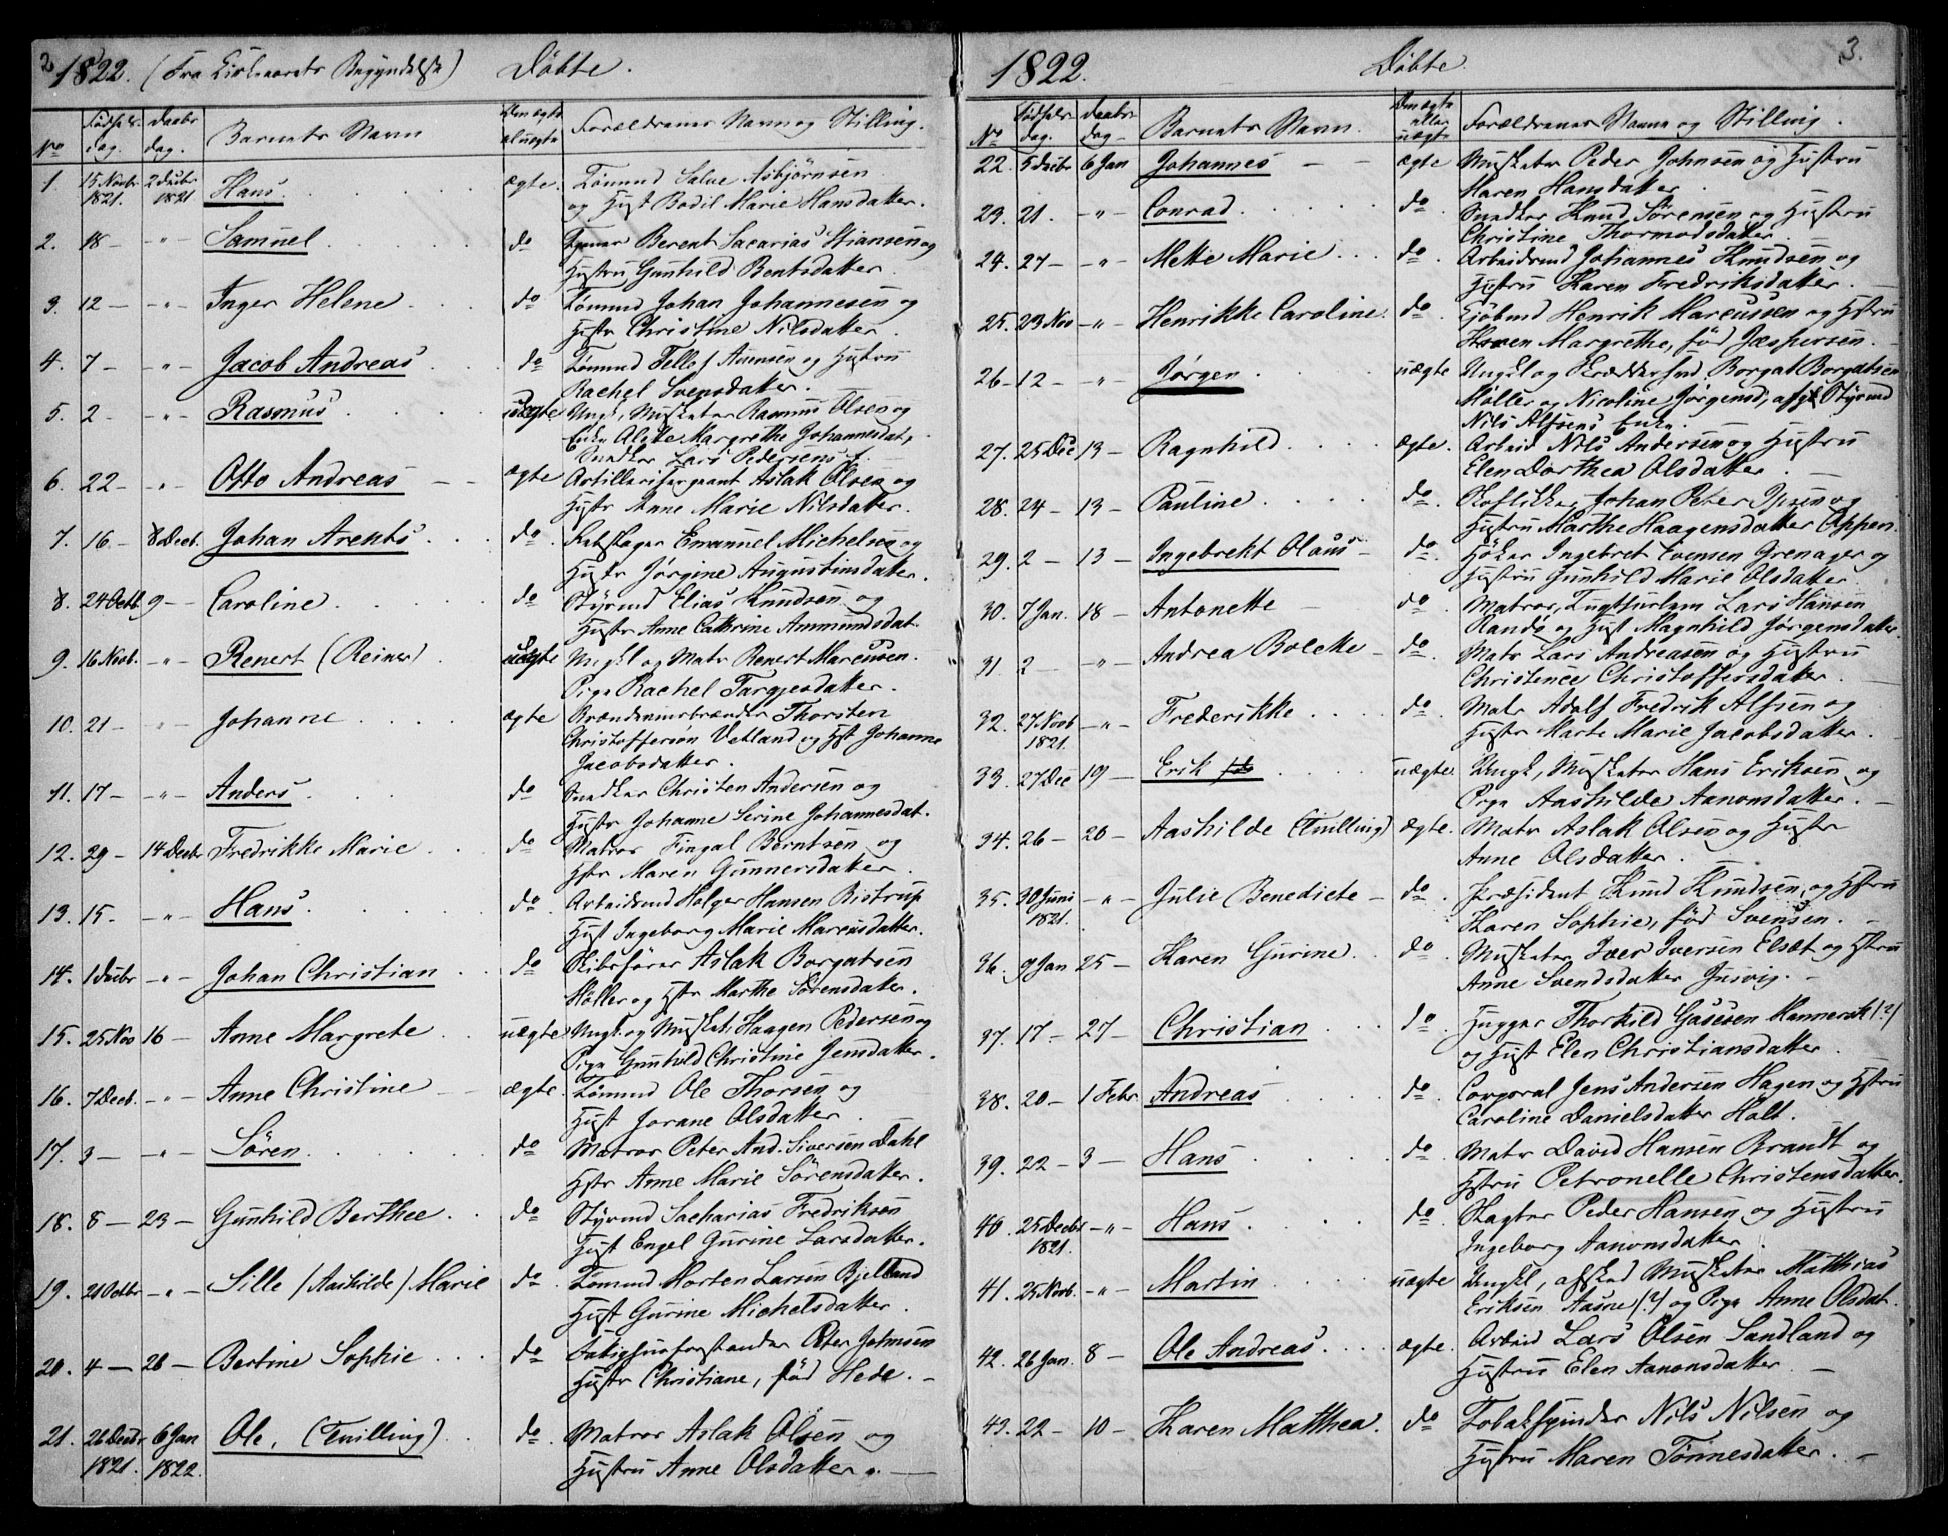 2
1822. (Fra Kirkeaarets Begyndelse) Døbte.
No Fødsels dag. Daabs dag. Barnets Navn Om ægte el uægte Forældrenes Navn og Stilling.
1 15 Novbr 1821. 2 Decbr 1821 Hans. ægte. Tømmd Salve Asbjørnsen
og Hust Bodil Marie Hansdatter.
2. 18 — -"- Samuel do Berent Sacarias Stiansen og
Hustru Gunhild Bentsdatter.
3. 12 — -"- Inger Helene do Tømmd Johan Johannesen og
Hustr Christine Nilsdatter.
4. 7 — -"- Jacob Andreas do Tømmd Tellef Anensen og Hustru
Rachel Svensdatter.
5. 2 — -"- Rasmus uægte Ungk, Musketer Rasmus Olsen og
Enke Alette Margrethe Johannesdat,
Snedker Lars Pedersens E.
6. 22 — -"- Otto Andreas ægte Artillerisergeant Aslak Olsen og
Hustr Anne Marie Nilsdatter.
7. 16 — 8 Decb. Johan Arents do Rebslager Emanuel Michelsen og
Hustr Jørgine Augustinsdatter.
8. 24 Octb. 9 — Caroline do Styrmd Elias Knudsen og
Hustr Anne Cathrine Ammundsdat.
9. 16 Novb. -"- Renert (Reiner) uægte Ungkl og Matr Renert Marcussen.
Pige Rachel Targjesdatter.
10. 21 — -"- Johanne ægte Brændeviinsbrænder Thorsten
Christoffersøn Vetland og Hst Johanne
Jacobsdatter.
11. 17 — -"- Anders do Snedker Christen Andersen og
Hustr Johanne Serine Johannesdat.
12. 29 — 14 Decbr Fredrikke Marie do Matros Fingal Berntsen og
Hstr Maren Gunnersdatter
13. 15. -"- Hans do Arbeidsmd Holger Hansen Bistrup
Hust Ingeborg Marie Marcusdatter.
14. 1 Decbr -"- Johan Christian do Skibsfører Aslak Borgatsen
Møller og Hstr Marthe Sørensdatter.
15. 25 Nov 16 — Anne Margrete uægte Ungk. og Musket. Haagen Pedersen og
Pige Gunhild Christine Jensdatter.
16. 7 Decb. -"- Anne Christine ægte. Tømmd Ole Thorsen og
Hust Jorane Olsdatter
17. 3 — -"- Søren do Matros Peter And. Siversen Dahl
Hstr Anne Marie Sørensdatter.
18. 8 — 23 — Gunhild Berthee do Styrmd Sacharias Fredriksen
Hust Engel Gurine Larsdatter.
19. 21 Octbr -"- Sille (Aashilde) Marie do Tømmd Morten Larsen Bjelland
Hust Gurine Michelsdatter.
20. 4 — 26 — Bertine Sophie do Fatighuusforstander Peter Johnsen
Hustr Christiane, født Hede. —
21. 26 Decbr 1821. 6 Jan 1822. Ole, (Tvilling) do Matros Aslak Olsen og
Hustru Anne Olsdatter. —
3.
1822. Døbte.
No Fødsels dag. Daabs dag Barnets Navn. Om ægte eller uægte Forældrenes Navne og Stilling.
22. 5 Decbr 6 Jan Johannes ægte Musketer Peder Johnsen og Hustru
Maren Hansdatter
23. 21. -"- Conrad do Snedker Knud Sørensen og Hustru
Christine Thormodsdatter
24. 27 — -"- Mette Marie do Arbeidsmd Johannes Knudsen og
Hustru Karen Fredriksdatter. —
25. 23 Nov -"- Henrikke Caroline do Henrik Marcussen og Hstru
Maren Margrethe, født Jæspersen. —
26 — 12 — -"- Jørgen uægte Ungkl og Skræddersvd Borgat Borgatsen
Møller og Nicoline Jørgensd, afg. Styrmd
Nils Alfsens Enke. —
27. 25 Dec 13 — Ragnhild ægte. Arbeid Nils Andersen og Hustru
Elen Dorthea Olsdatter —
28. 24 — 13 — Pauline do Skoflikker Johan Peter Ipsen og
Hustru Marthe Haagensdatter Oppen.
29. 2 — 13 — Ingebrekt Olaus do Høker Ingebret Evensen Grenager og
Hustru Gunhild Marie Olsdatter.
30. 7 Jan. 18 — Antonette do Matros, Lars Hansen
Randø og Hust Magnhild Jørgensdatter
31 2 — -"- Andrea Bolette do Matr Lars Andreasen og Hustru
Christence Christoffersdatter.
32. 27 Novb 1821. -"- Frederikke do Matr Adolf Fredrik Alfsen og
Hustr Marte Marie Jacobsdatter. —
33. 27 Dec 19 — Erik uægte. Ungk, Musketer Hans Eriksen og
Pige Aashilde Aanonsdatter. —
34. 26 — 20 — Aashilde (Tvilling) ægte. Matr Aslak Olsen og Hustr
Anne Olsdatter.
35. 30 Juni 1821. -"- Julie Benedicte do Præsident Knud Knudsen og Hstru
Karen Sophie, født Svensen. —
36. 9 Jan 25 — Karen Gurine do Musketer Iver Iversen Elsæt og Hstru
Anne Svendsdatter Justvig. —
37. 17 — 27 — Christian do Hugger Thorkild Gasesen Mannersk (?)
og Hust Elen Christiansdatter
38. 20 — 1 Febr Andreas do Corporal Jens Andersen Hagen og Hstru
Caroline Danielsdatter Holt.
39. 22 — 3 — Hans do Matr David Hansen Brandt og
Hstru Petronelle Christensdatter.
40. 25 Decbr 1821. -"- Hans do Slagter Peder Hansen og Hustru
Ingeborg Aanonsdatter
41. 25 Novb. -"- Martin uægte Ungkl, afsked Musketer Matthias
Eriksen Aasne (?) og Pige Anne Olsdat.
42. 26 Jan. 8 — Ole Andreas ægte. Arbeid Lars Olsen Sandland og
Hustru Elen Aanonsdatter —
43. 22 — 10 — Karen Matthea. do Tobakspinder Nils Nilsen og
Hustru Maren Tønnesdatter. —